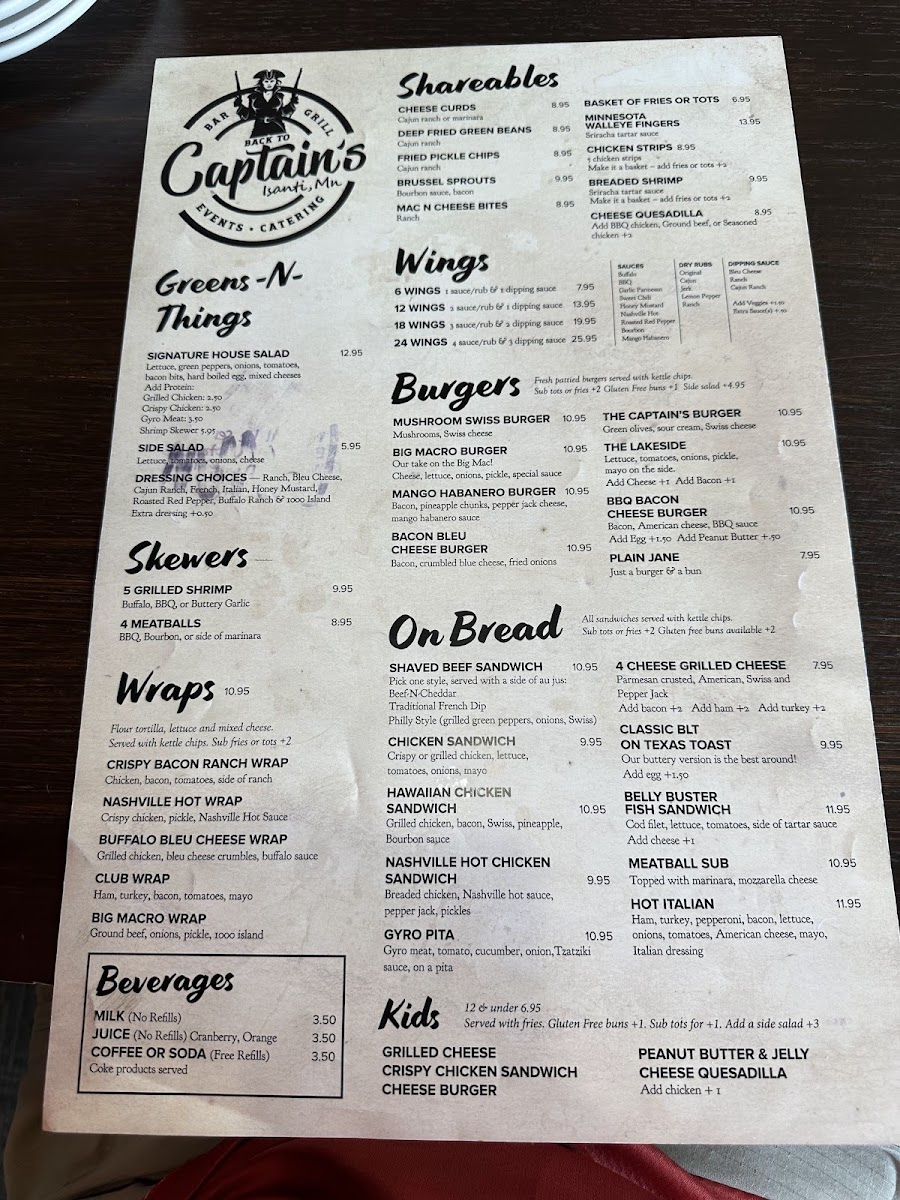 BAR GRILL
BACK TO
Captain's
Isanti, Mn
EVENTS • CATERING
Greens -N-
Things
SIGNATURE HOUSE SALAD 12.95
Lettuce, green peppers, onions, tomatoes,
bacon bits, hard boiled egg, mixed cheeses
Add Protein:
Grilled Chicken: 2.50
Crispy Chicken: 2.50
Gyro Meat: 3.50
Shrimp Skewer 5.95
SIDE SALAD 5.95
Lettuce, tomatoes, onions, cheese
DRESSING CHOICES — Ranch, Bleu Cheese,
Cajun Ranch, French, Italian, Honey Mustard,
Roasted Red Pepper, Buffalo Ranch & 1000 Island
Extra dressing +0.50
Skewers
5 GRILLED SHRIMP 9.95
Buffalo, BBQ, or Buttery Garlic
4 MEATBALLS 8.95
BBQ, Bourbon, or side of marinara
Wraps 10.95
Flour tortilla, lettuce and mixed cheese.
Served with kettle chips. Sub fries or tots +2
CRISPY BACON RANCH WRAP
Chicken, bacon, tomatoes, side of ranch
NASHVILLE HOT WRAP
Crispy chicken, pickle, Nashville Hot Sauce
BUFFALO BLEU CHEESE WRAP
Grilled chicken, bleu cheese crumbles, buffalo sauce
CLUB WRAP
Ham, turkey, bacon, tomatoes, mayo
BIG MACRO WRAP
Ground beef, onions, pickle, 1000 island
Beverages
MILK (No Refills) 3.50
JUICE (No Refills) Cranberry, Orange 3.50
COFFEE OR SODA (Free Refills) 3.50
Coke products served
Shareables
CHEESE CURDS 8.95
Cajun ranch or marinara
DEEP FRIED GREEN BEANS 8.95
Cajun ranch
FRIED PICKLE CHIPS 8.95
Cajun ranch
BRUSSEL SPROUTS 9.95
Bourbon sauce, bacon
MAC N CHEESE BITES 8.95
Ranch
BASKET OF FRIES OR TOTS 6.95
MINNESOTA
WALLEYE FINGERS 13.95
Sriracha tartar sauce
CHICKEN STRIPS 8.95
5 chicken strips
Make it a basket – add fries or tots +2
BREADED SHRIMP 9.95
Sriracha tartar sauce
Make it a basket – add fries or tots +2
CHEESE QUESADILLA 8.95
Add BBQ chicken, Ground beef, or Seasoned
chicken +2
Wings
6 WINGS 1 sauce/rub & 1 dipping sauce 7.95
12 WINGS 2 sauce/rub & 1 dipping sauce 13.95
18 WINGS 3 sauce/rub & 2 dipping sauce 19.95
24 WINGS 4 sauce/rub & 3 dipping sauce 25.95
SAUCES
Buffalo
BBQ
Garlic Parmesan
Sweet Chili
Honey Mustard
Nashville Hot
Roasted Red Pepper
Bourbon
Mango Habanero
DRY RUBS
Original
Cajun
Jerk
Lemon Pepper
Ranch
DIPPING SAUCE
Bleu Cheese
Ranch
Cajun Ranch
Add Veggies +1.50
Extra Sauce(s) +.50
Burgers
Fresh pattied burgers served with kettle chips.
Sub tots or fries +2 Gluten Free buns +1 Side salad +4.95
MUSHROOM SWISS BURGER 10.95
Mushrooms, Swiss cheese
BIG MACRO BURGER 10.95
Our take on the Big Mac!
Cheese, lettuce, onions, pickle, special sauce
MANGO HABANERO BURGER 10.95
Bacon, pineapple chunks, pepper jack cheese,
mango habanero sauce
BACON BLEU
CHEESE BURGER 10.95
Bacon, crumbled blue cheese, fried onions
THE CAPTAIN'S BURGER 10.95
Green olives, sour cream, Swiss cheese
THE LAKESIDE 10.95
Lettuce, tomatoes, onions, pickle,
mayo on the side.
Add Cheese +1 Add Bacon +1
BBQ BACON
CHEESE BURGER 10.95
Bacon, American cheese, BBQ sauce
Add Egg +1.50 Add Peanut Butter +.50
PLAIN JANE 7.95
Just a burger & a bun
On Bread
All sandwiches served with kettle chips.
Sub tots or fries +2 Gluten free buns available +2
SHAVED BEEF SANDWICH 10.95
Pick one style, served with a side of au jus:
Beef-N-Cheddar
Traditional French Dip
Philly Style (grilled green peppers, onions, Swiss)
CHICKEN SANDWICH 9.95
Crispy or grilled chicken, lettuce,
tomatoes, onions, mayo
HAWAIIAN CHICKEN
SANDWICH 10.95
Grilled chicken, bacon, Swiss, pineapple,
Bourbon sauce
NASHVILLE HOT CHICKEN
SANDWICH 9.95
Breaded chicken, Nashville hot sauce,
pepper jack, pickles
GYRO PITA 10.95
Gyro meat, tomato, cucumber, onion,Tzatziki
sauce, on a pita
4 CHEESE GRILLED CHEESE 7.95
Parmesan crusted, American, Swiss and
Pepper Jack
Add bacon +2 Add ham +2 Add turkey +2
CLASSIC BLT
ON TEXAS TOAST 9.95
Our buttery version is the best around!
Add egg +1.50
BELLY BUSTER
FISH SANDWICH 11.95
Cod filet, lettuce, tomatoes, side of tartar sauce
Add cheese +1
MEATBALL SUB 10.95
Topped with marinara, mozzarella cheese
HOT ITALIAN 11.95
Ham, turkey, pepperoni, bacon, lettuce,
onions, tomatoes, American cheese, mayo,
Italian dressing
Kids
12 & under 6.95
Served with fries. Gluten Free buns +1. Sub tots for +1. Add a side salad +3
GRILLED CHEESE
CRISPY CHICKEN SANDWICH
CHEESE BURGER
PEANUT BUTTER & JELLY
CHEESE QUESADILLA
Add chicken + 1